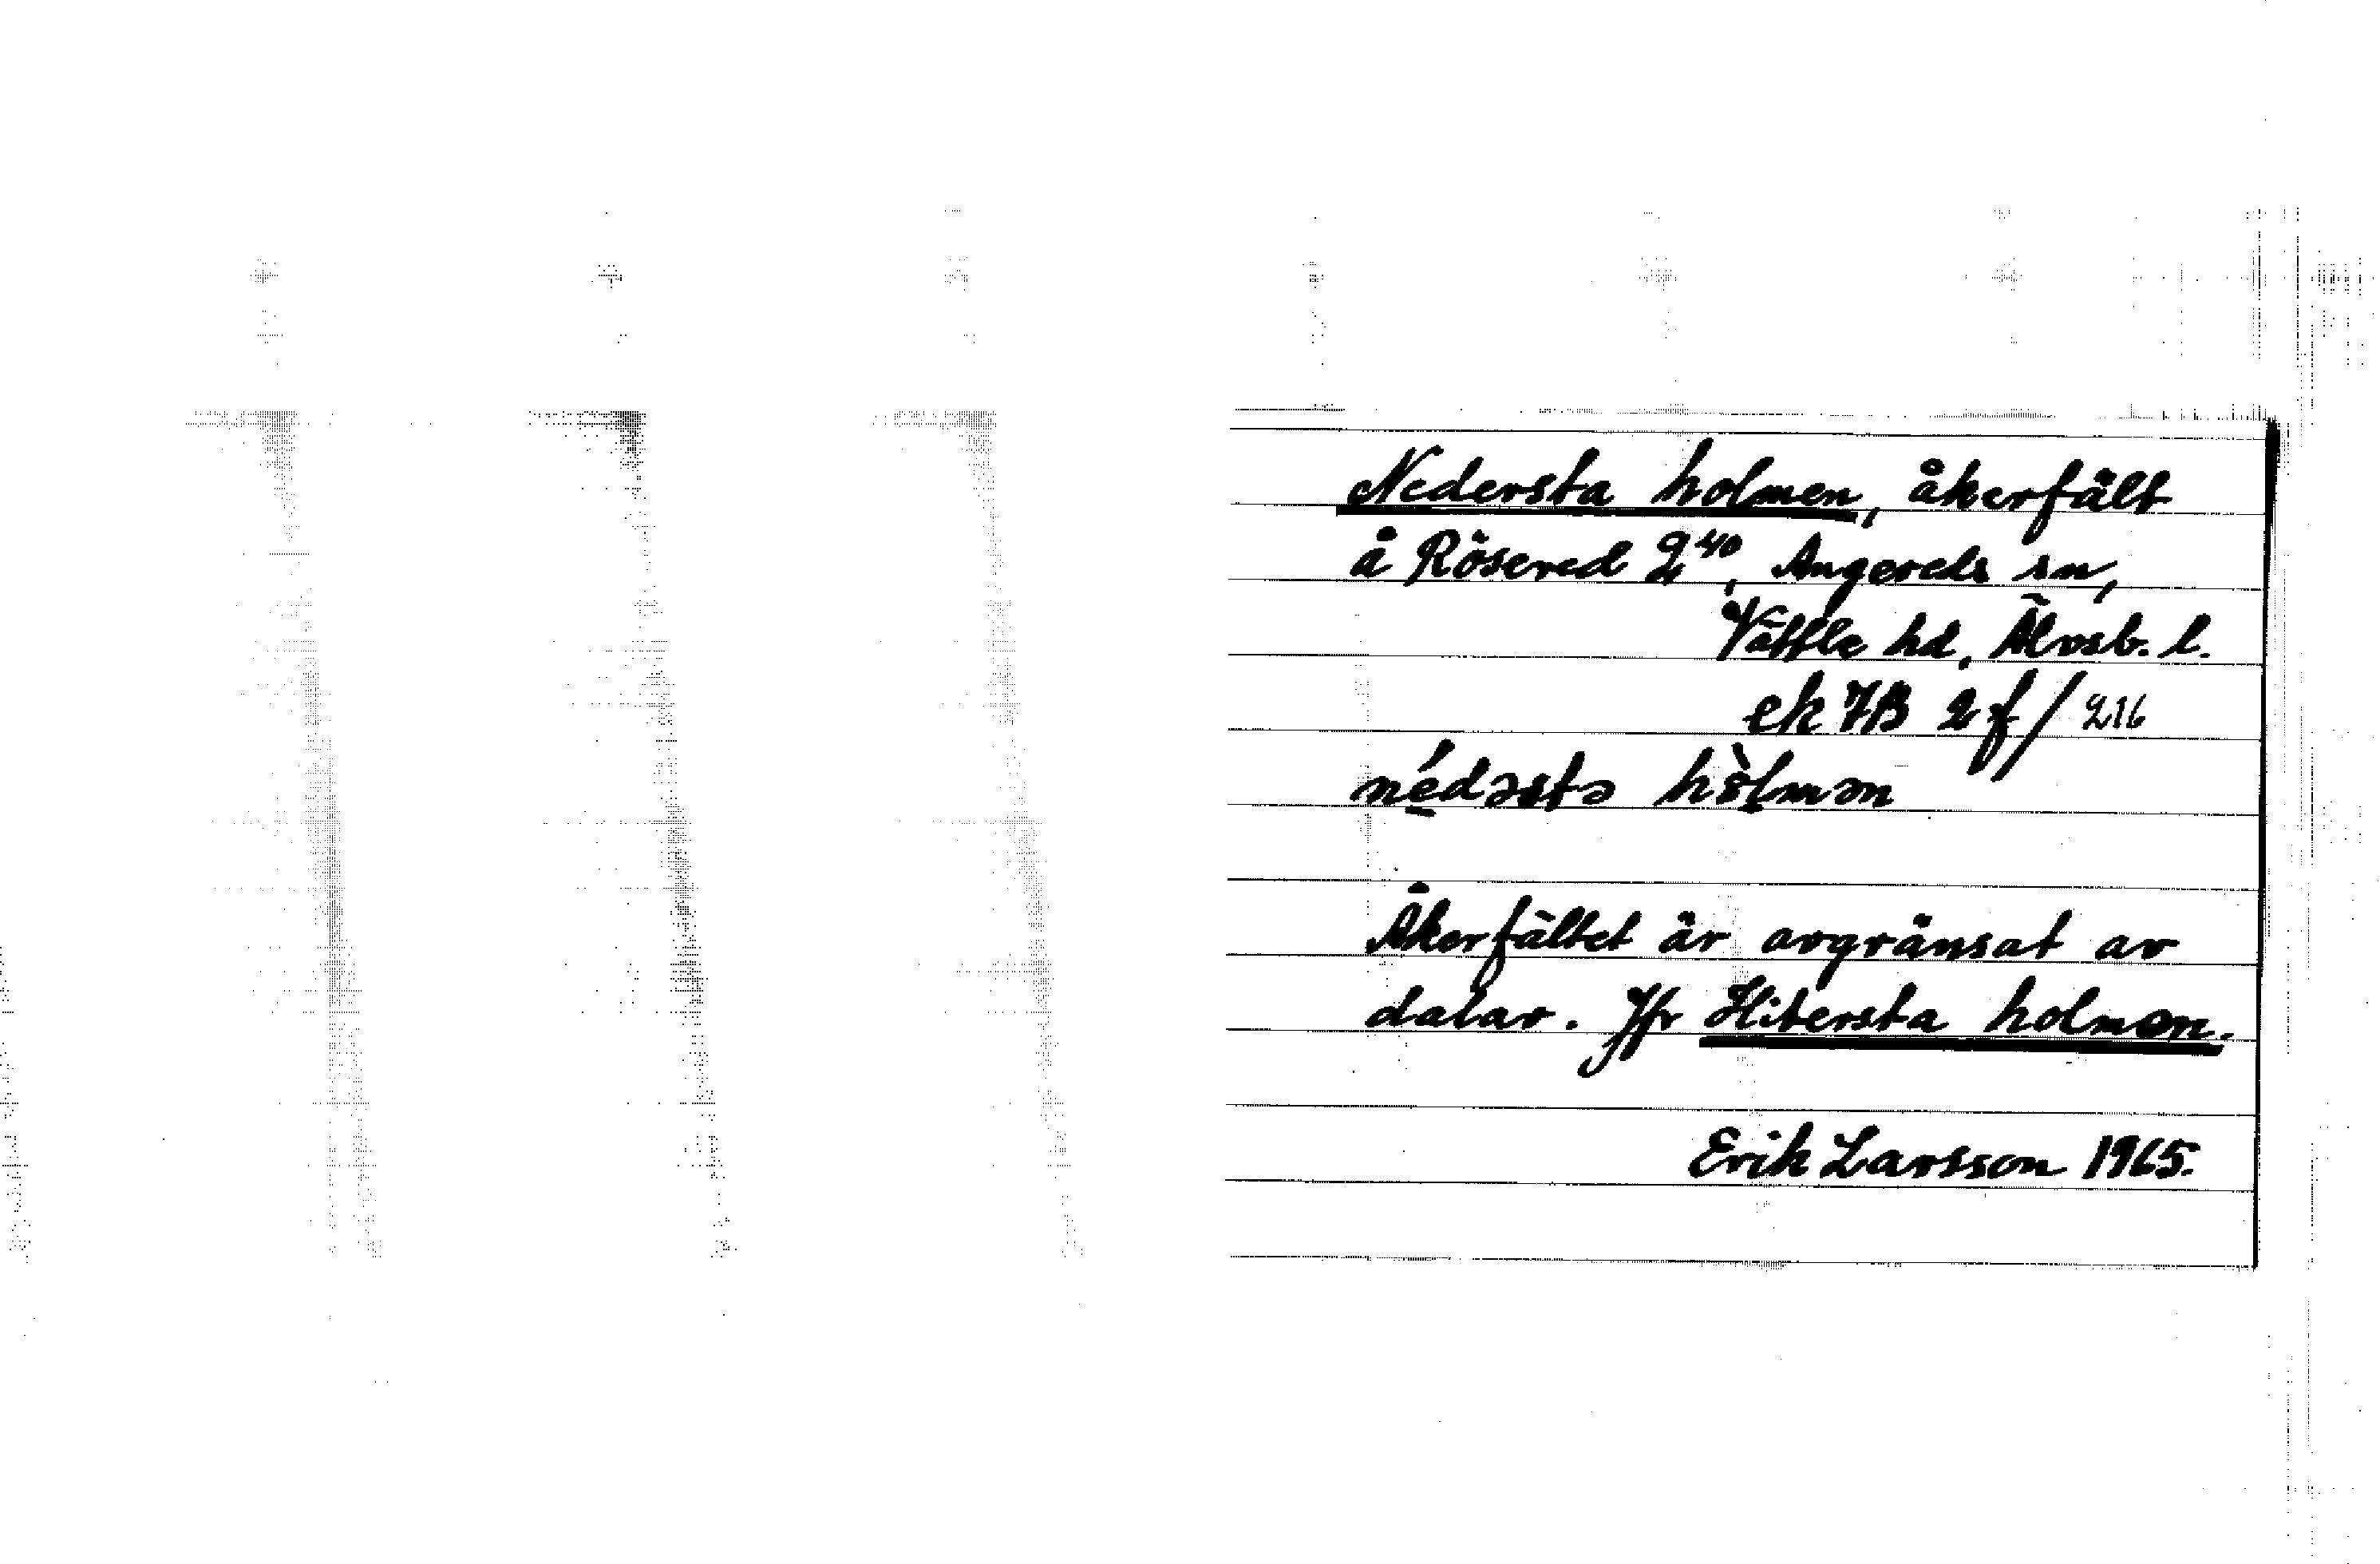 Nedersta holmen, åkerfält
å Rösered 2⁴⁰, Angereds sn,
Vättle hd, Älvsb. l.
ek 7B 2 f/216
nédəstə hòlmən
Åkerfältet är avgränsat av
dalar. Jfr Hitersta holmen.
Erik Larsson 1965.